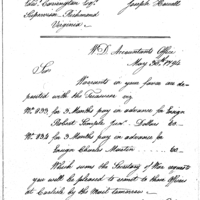 Geo. Carrington Esqr. Joseph Howell
Supervisor Richmond
Virginia
W.D. Accountants Office
May 30th 1794
Sir
Warrants in your favor are de-
posited with the Treasurer viz
No. 833 for 3 Months pay in advance for Ensign
Robert Semple for Dollars 60
No. 834 for 3 Months pay in advance for
Ensign Charles Martin 60
Which sums the Secretary of War
you will be pleased to remit to these Officers
at Carlisle by the Mail tomorrow